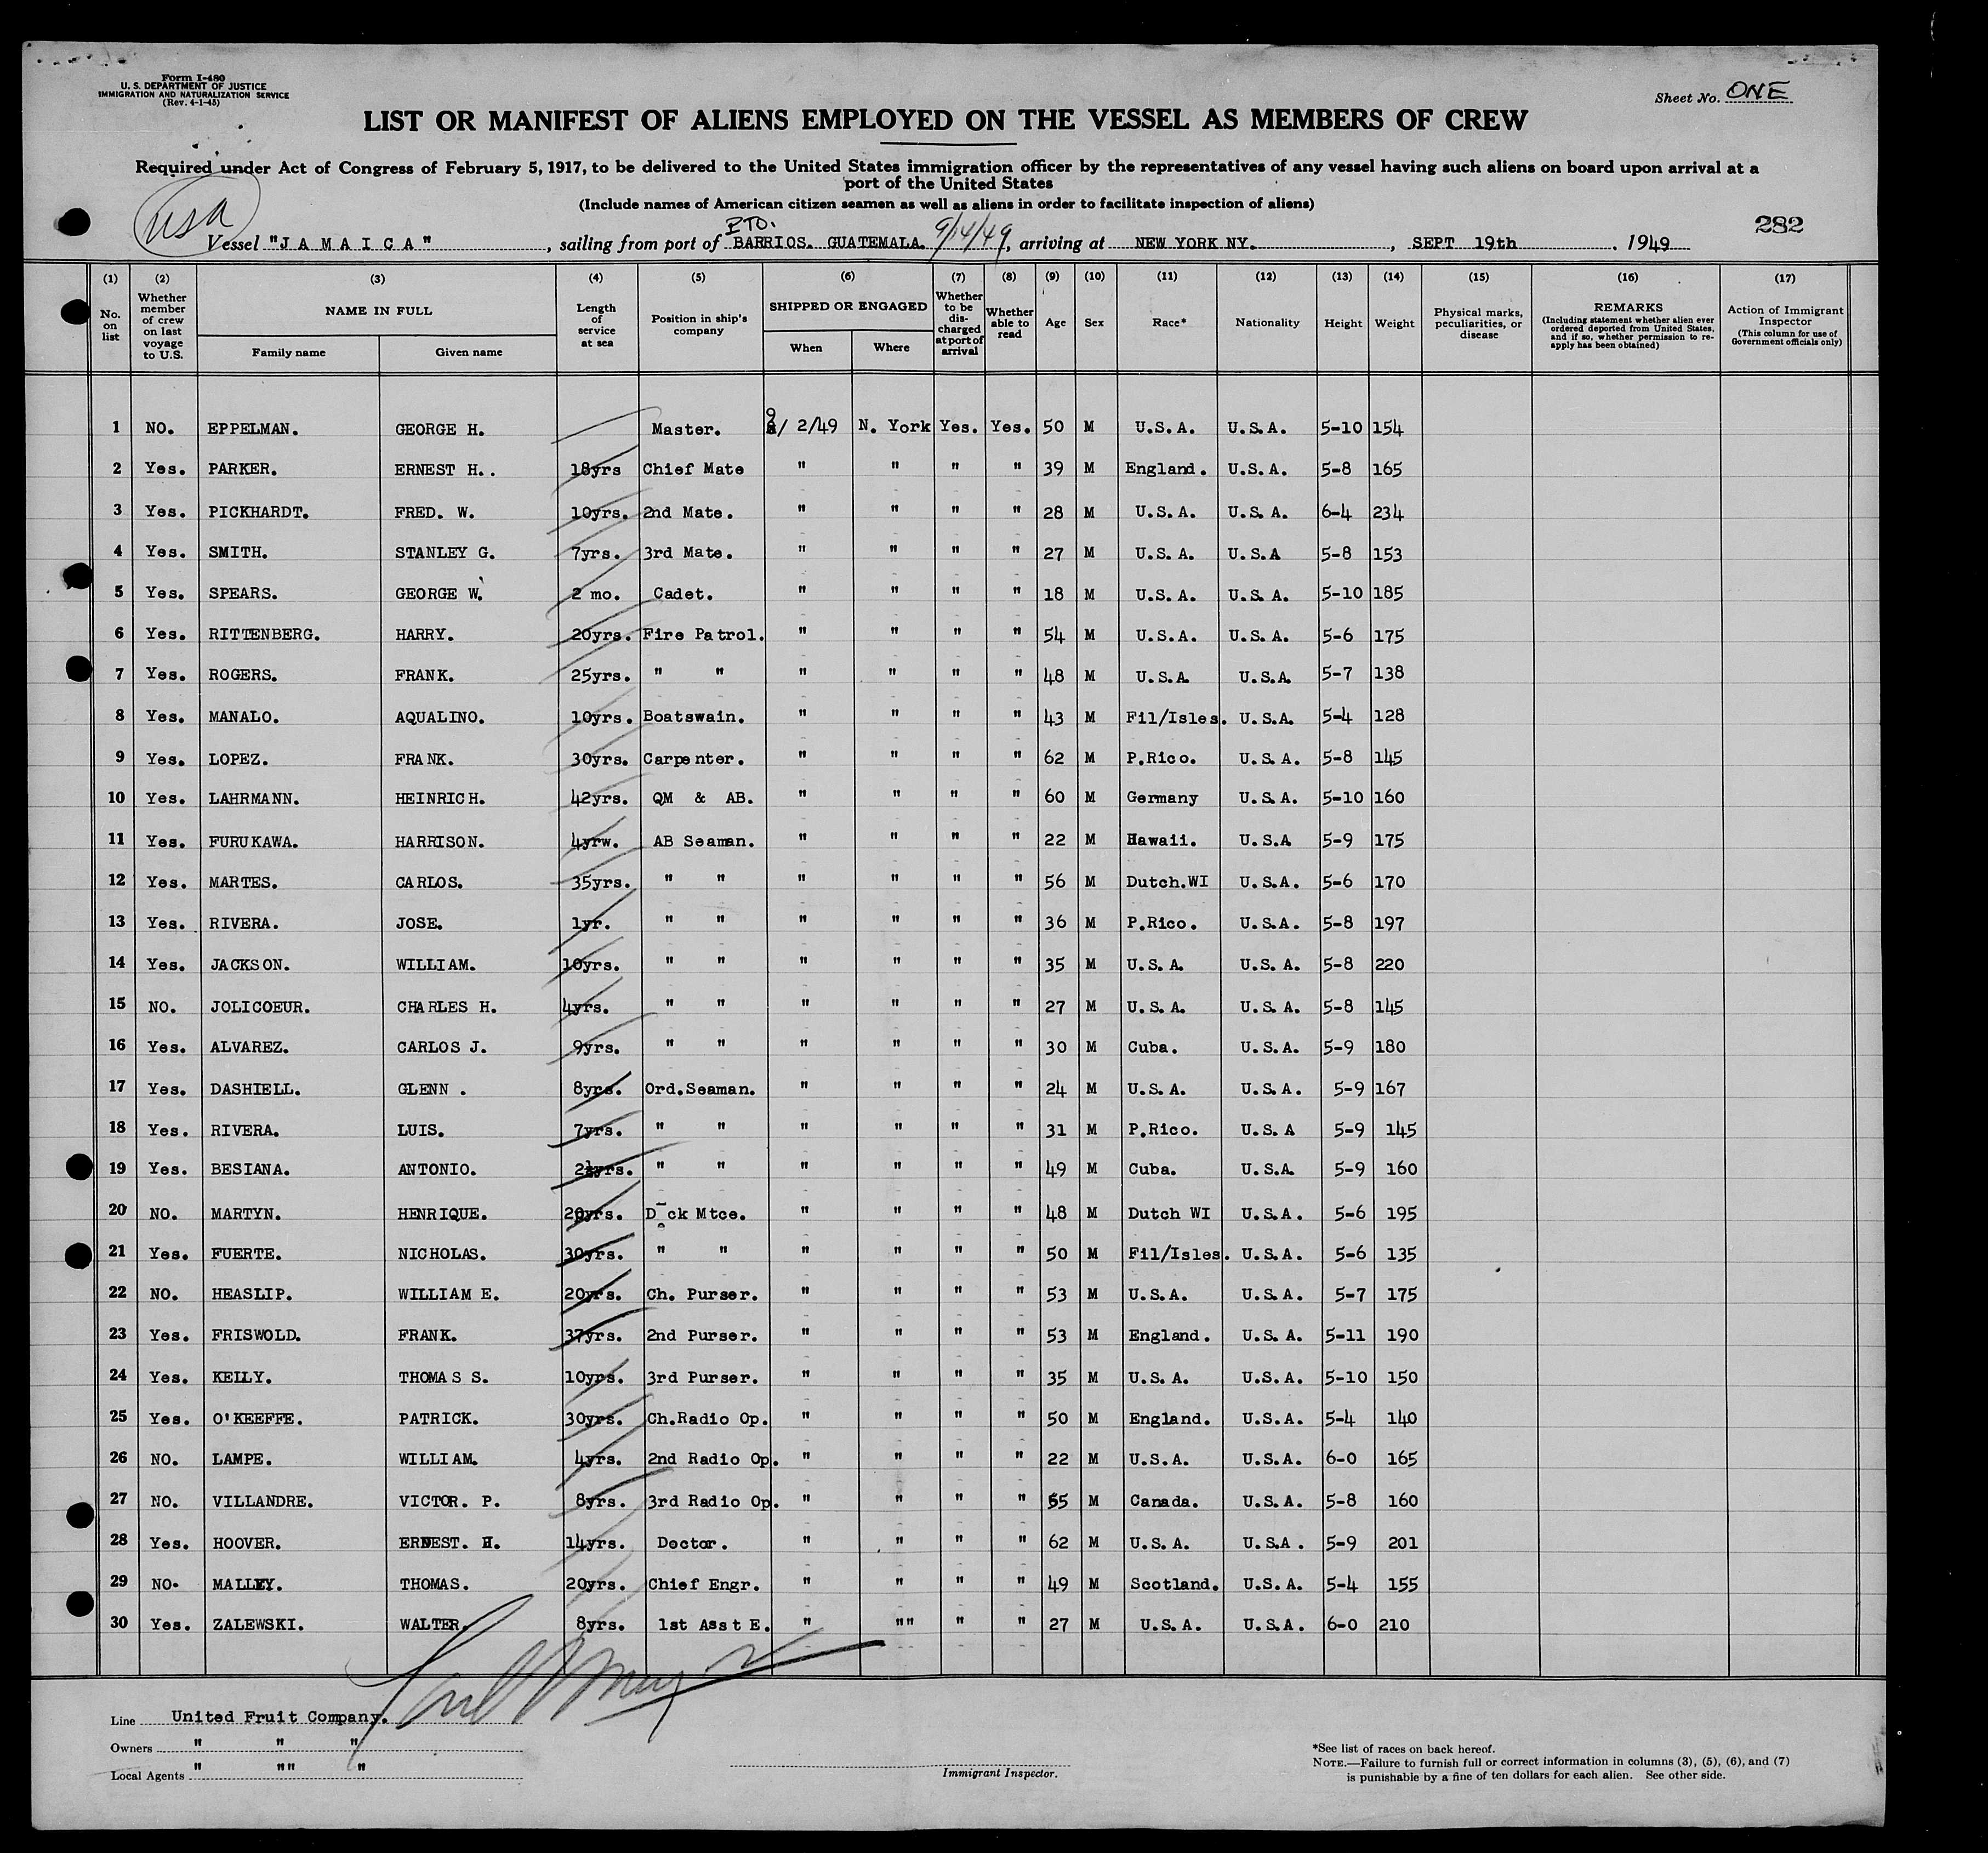 Form I-480
U. S. DEPARTMENT OF JUSTICE
IMMIGRATION AND NATURALIZATION SERVICE
(Rev. 4-1-45)
Sheet No. ONE
LIST OR MANIFEST OF ALIENS EMPLOYED ON THE VESSEL AS MEMBERS OF CREW
Required under Act of Congress of February 5, 1917, to be delivered to the United States immigration officer by the representatives of any vessel having such aliens on board upon arrival at a
port of the United States
(Include names of American citizen seamen as well as aliens in order to facilitate inspection of aliens)
282
usa
PTO.
Vessel "J A M A I C A", sailing from port of BARRIOS. GUATEMALA. 9/14/49, arriving at NEW YORK NY., SEPT 19th, 1949
(1) (2) (3) (4) (5) (6) (7) (8) (9) (10) (11) (12) (13) (14) (15) (16) (17)
No. on list
Whether member of crew on last voyage to U.S.
NAME IN FULL
Family name
Given name
Length of service at sea
Position in ship's company
SHIPPED OR ENGAGED
When
Where
Whether to be discharged at port of arrival
Whether able to read
Age
Sex
Race*
Nationality
Height
Weight
Physical marks, peculiarities, or disease
REMARKS
(Including statement whether alien ever ordered deported from United States, and if so, whether permission to re-apply has been obtained)
Action of Immigrant Inspector
(This column for use of Government officials only)
1 NO. EPPELMAN. GEORGE H. Master. 9/ 2/49 N. York Yes. Yes. 50 M U.S.A. U.S.A. 5-10 154
2 Yes. PARKER. ERNEST H.. 18yrs Chief Mate " " " " 39 M England. U.S.A. 5-8 165
3 Yes. PICKHARDT. FRED. W. 10yrs. 2nd Mate. " " " " 28 M U.S.A. U.S.A. 6-4 234
4 Yes. SMITH. STANLEY G. 7yrs. 3rd Mate. " " " " 27 M U.S.A. U.S.A 5-8 153
5 Yes. SPEARS. GEORGE W. 2 mo. Cadet. " " " " 18 M U.S.A. U.S.A. 5-10 185
6 Yes. RITTENBERG. HARRY. 20yrs. Fire Patrol. " " " " 54 M U.S.A. U.S.A. 5-6 175
7 Yes. ROGERS. FRANK. 25yrs. " " " " " " 48 M U.S.A U.S.A. 5-7 138
8 Yes. MANALO. AQUALINO. 10yrs. Boatswain. " " " " 43 M Fil/Isles. U.S.A. 5-4 128
9 Yes. LOPEZ. FRANK. 30yrs. Carpenter. " " " " 62 M P.Rico. U.S.A. 5-8 145
10 Yes. LAHRMANN. HEINRICH. 42yrs. QM & AB. " " " " 60 M Germany U.S.A. 5-10 160
11 Yes. FURUKAWA. HARRISON. 4yrw. AB Seaman. " " " " 22 M Hawaii. U.S.A 5-9 175
12 Yes. MARTES. CARLOS. 35yrs. " " " " " " 56 M Dutch.WI U.S.A. 5-6 170
13 Yes. RIVERA. JOSE. 1yr. " " " " " " 36 M P.Rico. U.S.A. 5-8 197
14 Yes. JACKSON. WILLIAM. 10yrs. " " " " " " 35 M U.S.A. U.S.A. 5-8 220
15 NO. JOLICOEUR. CHARLES H. 4yrs. " " " " " " 27 M U.S.A. U.S.A. 5-8 145
16 Yes. ALVAREZ. CARLOS J. 9yrs. " " " " " " 30 M Cuba. U.S.A. 5-9 180
17 Yes. DASHIELL. GLENN . 8yrs. Ord.Seaman. " " " " 24 M U.S.A. U.S.A. 5-9 167
18 Yes. RIVERA. LUIS. 7yrs. " " " " " " 31 M P.Rico. U.S.A 5-9 145
19 Yes. BESIANA. ANTONIO. 2½yrs. " " " " " " 49 M Cuba. U.S.A. 5-9 160
20 NO. MARTYN. HENRIQUE. 20yrs. Deck Mtce. " " " " 48 M Dutch WI U.S.A. 5-6 195
21 Yes. FUERTE. NICHOLAS. 30yrs. " " " " " " 50 M Fil/Isles. U.S.A. 5-6 135
22 NO. HEASLIP. WILLIAM E. 20yrs. Ch. Purser. " " " " 53 M U.S.A. U.S.A. 5-7 175
23 Yes. FRISWOLD. FRANK. 37yrs. 2nd Purser. " " " " 53 M England. U.S.A. 5-11 190
24 Yes. KELLY. THOMAS S. 10yrs. 3rd Purser. " " " " 35 M U.S.A. U.S.A. 5-10 150
25 Yes. O'KEEFFE. PATRICK. 30yrs. Ch.Radio Op. " " " " 50 M England. U.S.A. 5-4 140
26 NO. LAMPE. WILLIAM. 4yrs. 2nd Radio Op. " " " " 22 M U.S.A. U.S.A. 6-0 165
27 NO. VILLANDRE. VICTOR. P. 8yrs. 3rd Radio Op. " " " " 55 M Canada. U.S.A. 5-8 160
28 Yes. HOOVER. ERNEST. H. 14yrs. Doctor. " " " " 62 M U.S.A. U.S.A. 5-9 201
29 NO. MALLEY. THOMAS. 20yrs. Chief Engr. " " " " 49 M Scotland. U.S.A. 5-4 155
30 Yes. ZALEWSKI. WALTER. 8yrs. 1st Asst E. " "" " " 27 M U.S.A. U.S.A. 6-0 210
Line United Fruit Company.
Owners " " "
Local Agents " "" "
Immigrant Inspector.
*See list of races on back hereof.
NOTE.—Failure to furnish full or correct information in columns (3), (5), (6), and (7)
is punishable by a fine of ten dollars for each alien. See other side.